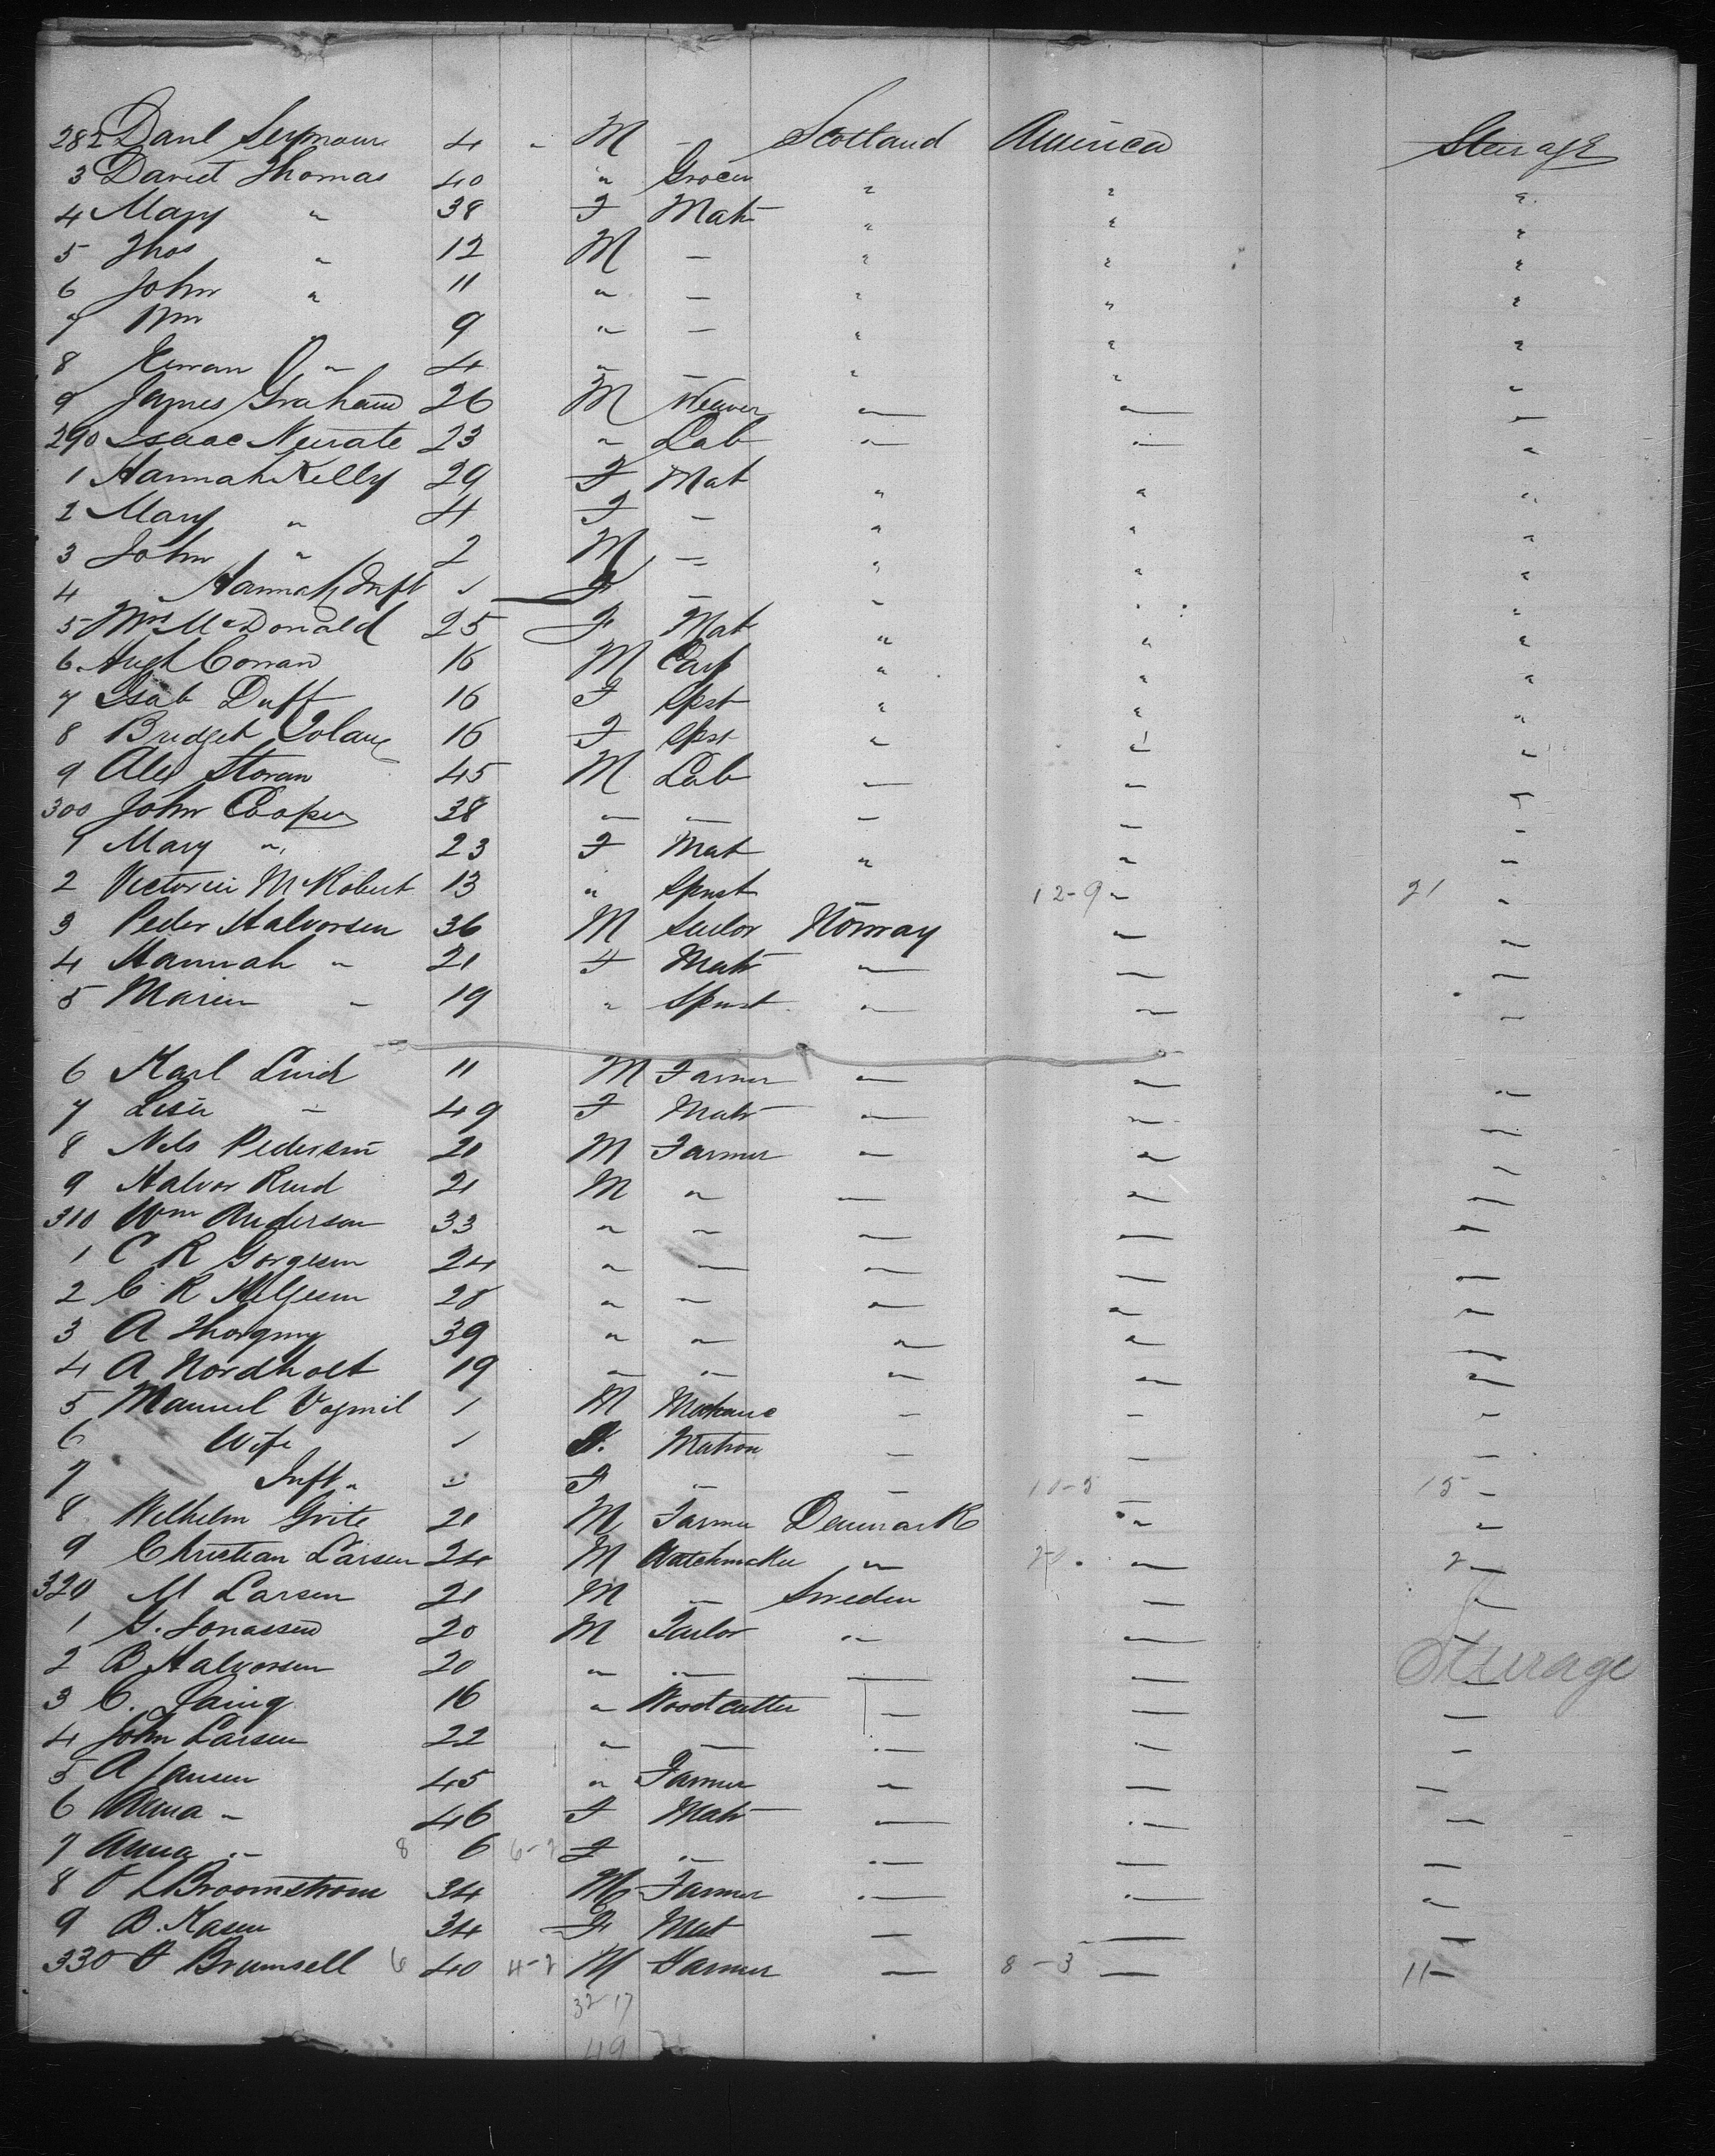 282 Danl Seymour 4 " M - Scotland America Steerage
3 David Thomas 40 " Grocer " " "
4 Mary " 38 F Matr " " "
5 Thos " 12 M - " " "
6 John " 11 " - " " "
7 Wm " 9 " - " " "
8 " 4 " - " " "
9 James Graham 26 M Weaver " " "
290 Isaac 23 " Lab " " "
1 Hannah Kelly 29 F Mat " " "
2 Mary " 4 F - " " "
3 John " 2 M - " " "
4 Hannah Inft ✓ F - " " "
5 Mrs McDonald 25 F Mat " " "
6 Hugh Conran 16 M Carp " " "
7 Isab Duff 16 F Spst " " "
8 Bridget 16 F Spst " " "
9 Alex Storan 45 M Lab " " "
300 John Cooper 38 " " " " "
1 Mary " 23 F Mat " " "
2 Victoria McRobert 13 " Spnst " 12-9 " 21 "
3 Peder Halvorsen 36 M Sailor Norway " "
4 Hannah " 21 F Matr " " "
5 Maren " 19 " Spnst " " "
6 Karl 11 M Farmer " " "
7 Lisa " 49 F Matr " " "
8 Nels Pedersen 20 M Farmer " " "
9 Halvor Ruud 21 M " " " "
310 Wm Anderson 33 " " " " "
1 C R Gorgesen 24 " " " " "
2 C R Helgesen 28 " " " " "
3 A 39 " " " " "
4 A Nordholt 19 " " " " "
5 Manuel 1 M Mechanic " " "
6 Wife ✓ F. Matron " " "
7 Inft " " F " " 10-5 " 15 "
8 Wilhelm Grite 21 M Farmer Denmark " "
9 Christian Larsen 24 M Watchmaker " 2-0 " 2 "
320 M Larsen 21 M " Sweden " "
1 G. Jonassen 20 M Tailor " " "
2 B Halvorsen 20 " " " " " Steerage
3 C. Laing 16 " Woodcutter " " "
4 John Larsen 22 " " " " "
5 A Jansen 45 " Farmer " " "
6 Anna " 46 F Matr " " "
7 Anna " 8 6 6-2 F " " " "
8 O L Broomstrom 34 M Farmer " " "
9 B. Kasen 34 F Mat " " "
330 O Brumsell 6 40 4-2 M Farmer " 8-3 " 11 "
32 17
49